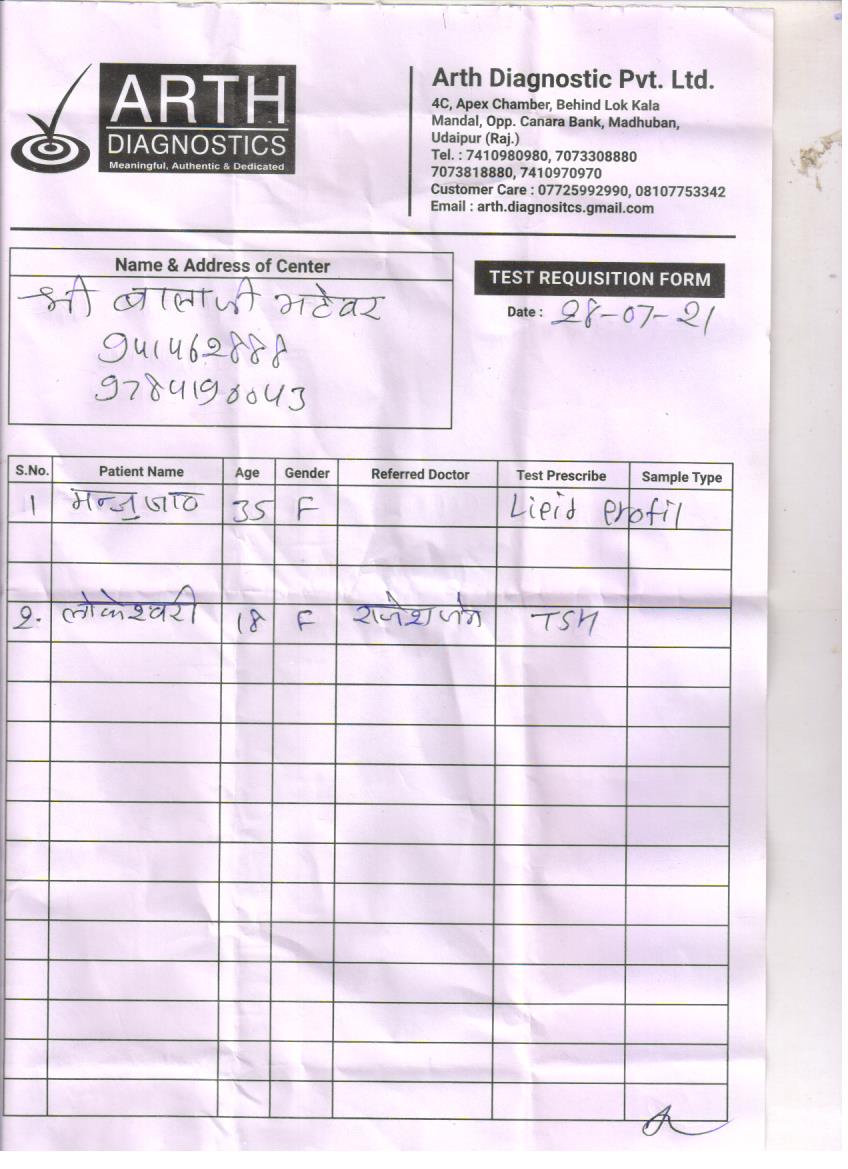 ARTH
DIAGNOSTICS
Meaningful, Authentic & Dedicated
Arth Diagnostic Pvt. Ltd.
4C, Apex Chamber, Behind Lok Kala
Mandal, Opp. Canara Bank, Madhuban,
Udaipur (Raj.)
Tel. : 7410980980, 7073308880
7073818880, 7410970970
Customer Care : 07725992990, 08107753342
Email : arth.diagnositcs.gmail.com
Name & Address of Center
श्री बालाजी भटेवर
941462888
9784190043
TEST REQUISITION FORM
Date : 28-07-21
S.No. Patient Name Age Gender Referred Doctor Test Prescribe Sample Type
1 मन्जु जाट 35 F Lipid Profil
2. लोकेश्वरी 18 F राजेश जैन TSH